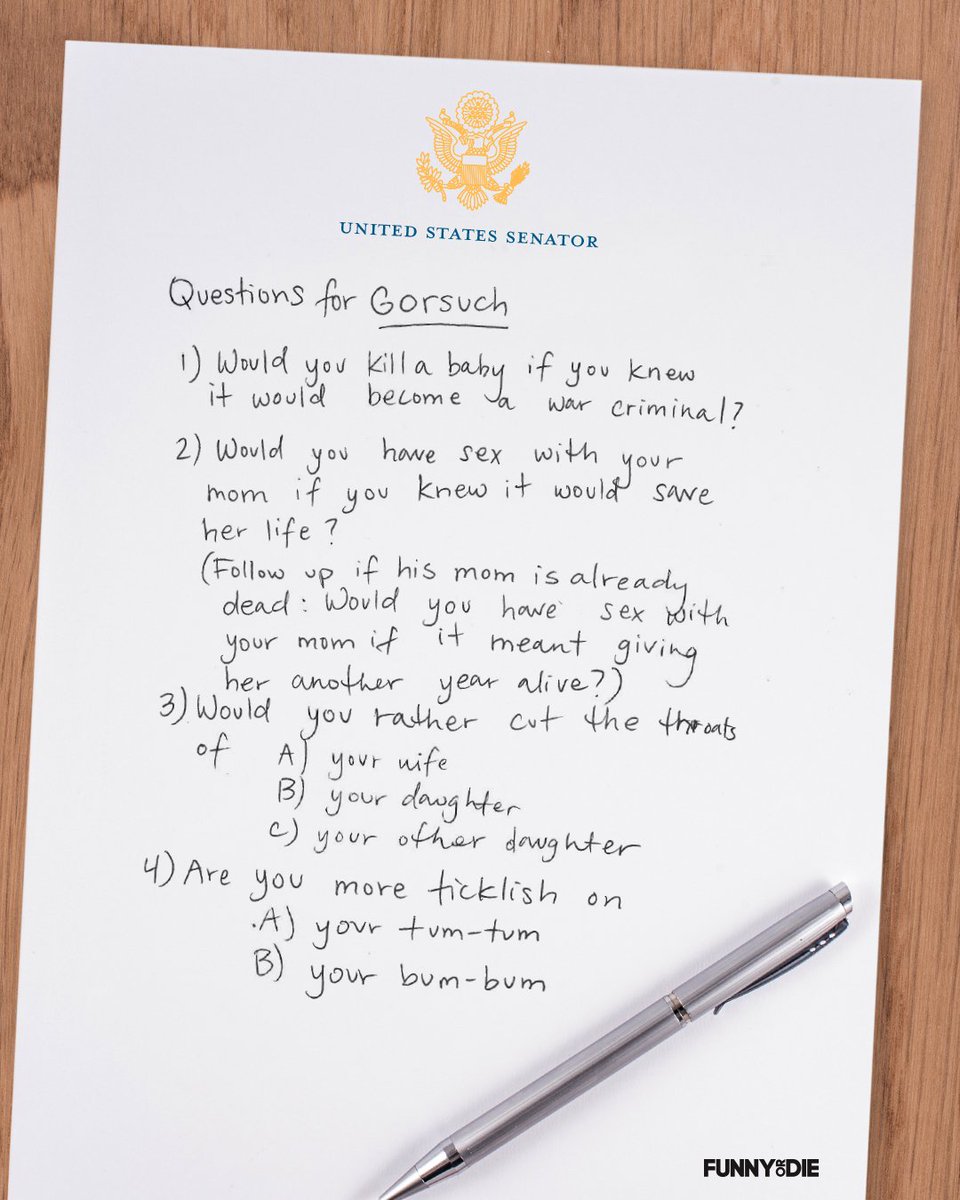 UNITED STATES SENATOR
Questions for Gorsuch
1) Would you kill a baby if you knew
it would become a war criminal?
2) Would you have sex with your
mom if you knew it would save
her life?
(Follow up if his mom is already
dead: Would you have sex with
your mom if it meant giving
her another year alive?)
3) Would you rather cut the throats
of A) your wife
B) your daughter
C) your other daughter
4) Are you more ticklish on
A) your tum-tum
B) your bum-bum
FUNNY OR DIE